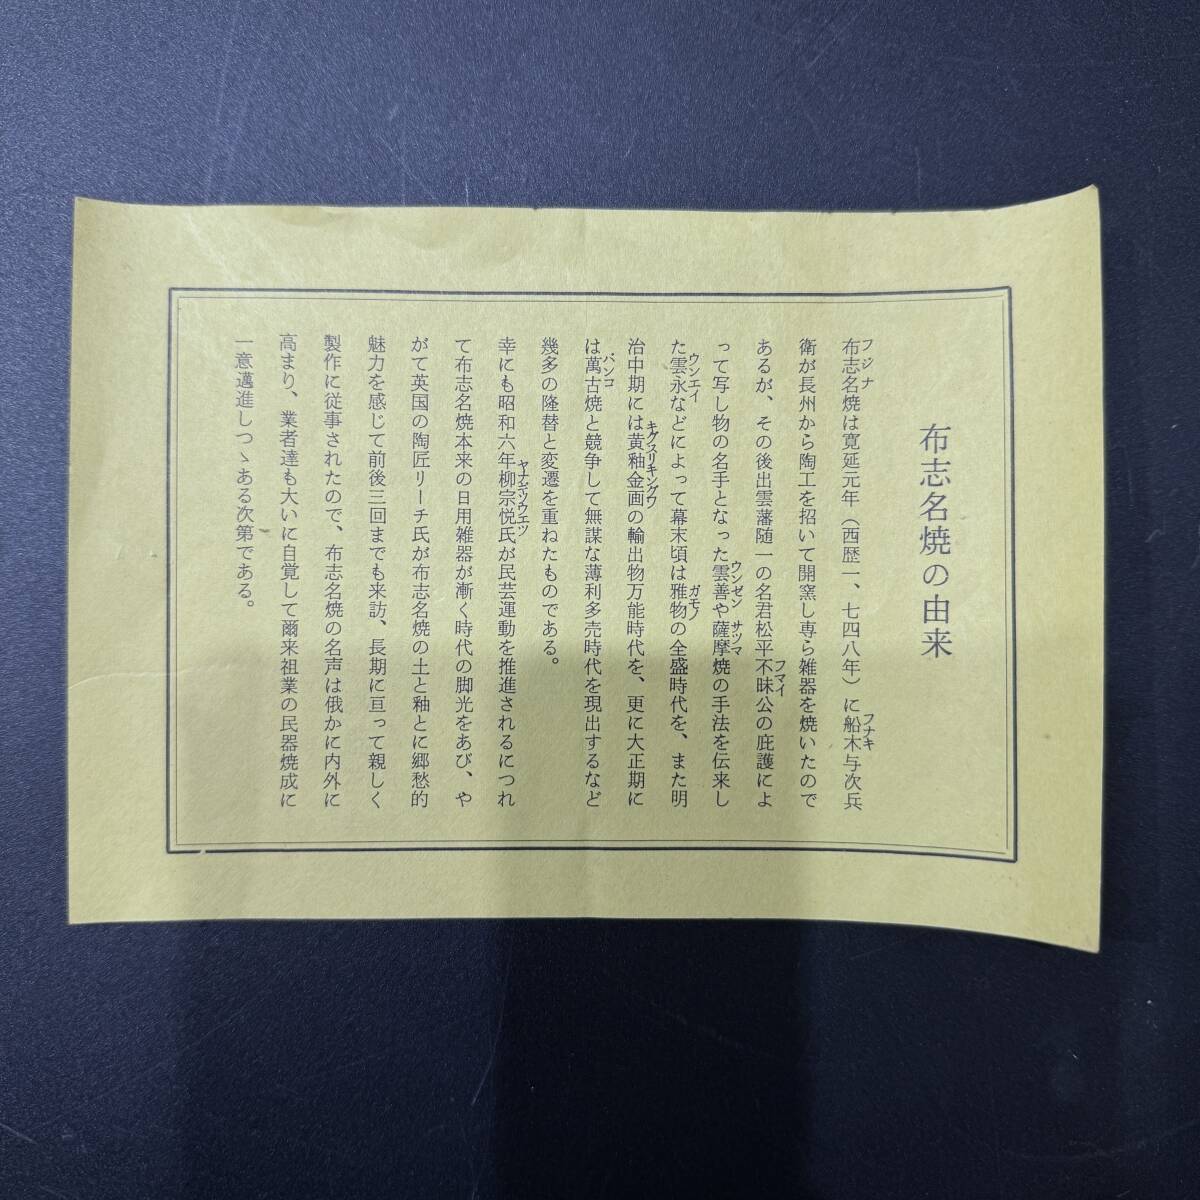 布志名焼の由来
布志名焼は寛延元年（西歴一、七四八年）に船木与次兵
衛が長州から陶工を招いて開窯し専ら雑器を焼いたので
あるが、その後出雲藩随一の名君松平不昧公の庇護によ
って写し物の名手となった雲善や薩摩焼の手法を伝来し
た雲永などによって幕末頃は雅物の全盛時代を、また明
治中期には黄釉金画の輸出物万能時代を、更に大正期に
は萬古焼と競争して無謀な薄利多売時代を現出するなど
幾多の隆替と変遷を重ねたものである。
幸にも昭和六年柳宗悦氏が民芸運動を推進されるにつれ
て布志名焼本来の日用雑器が漸く時代の脚光をあび、や
がて英国の陶匠リーチ氏が布志名焼の土と釉とに郷愁的
魅力を感じて前後三回までも来訪、長期に亘って親しく
製作に従事されたので、布志名焼の名声は俄かに内外に
高まり、業者達も大いに自覚して爾来祖業の民器焼成に
一意邁進しつゝある次第である。
フジナ
フナキ
フマイ
ウンゼン
サツマ
ウンエイ
ガモノ
キグスリキングワ
バンコ
ヤナギソウエツ